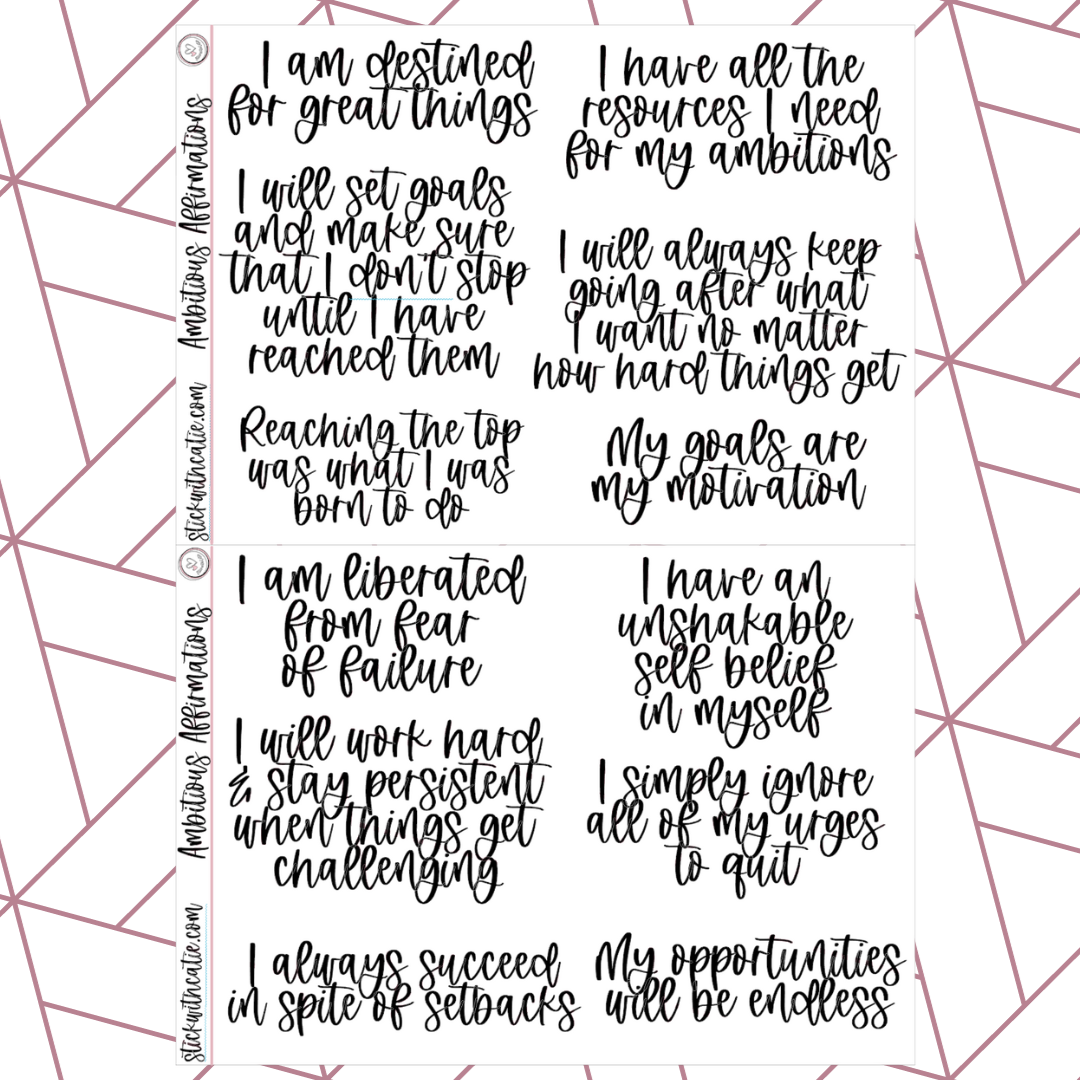 Ambitious Affirmations
stickwithcatie.com
I am destined
for great things
I will set goals
and make sure
that I don't stop
until I have
reached them
Reaching the top
was what I was
born to do
I have all the
resources I need
for my ambitions
I will always keep
going after what
I want no matter
how hard things get
My goals are
my motivation
Ambitious Affirmations
stickwithcatie.com
I am liberated
from fear
of failure
I will work hard
& stay persistent
when things get
challenging
I always succeed
in spite of setbacks
I have an
unshakable
self belief
in myself
I simply ignore
all of my urges
to quit
My opportunities
will be endless